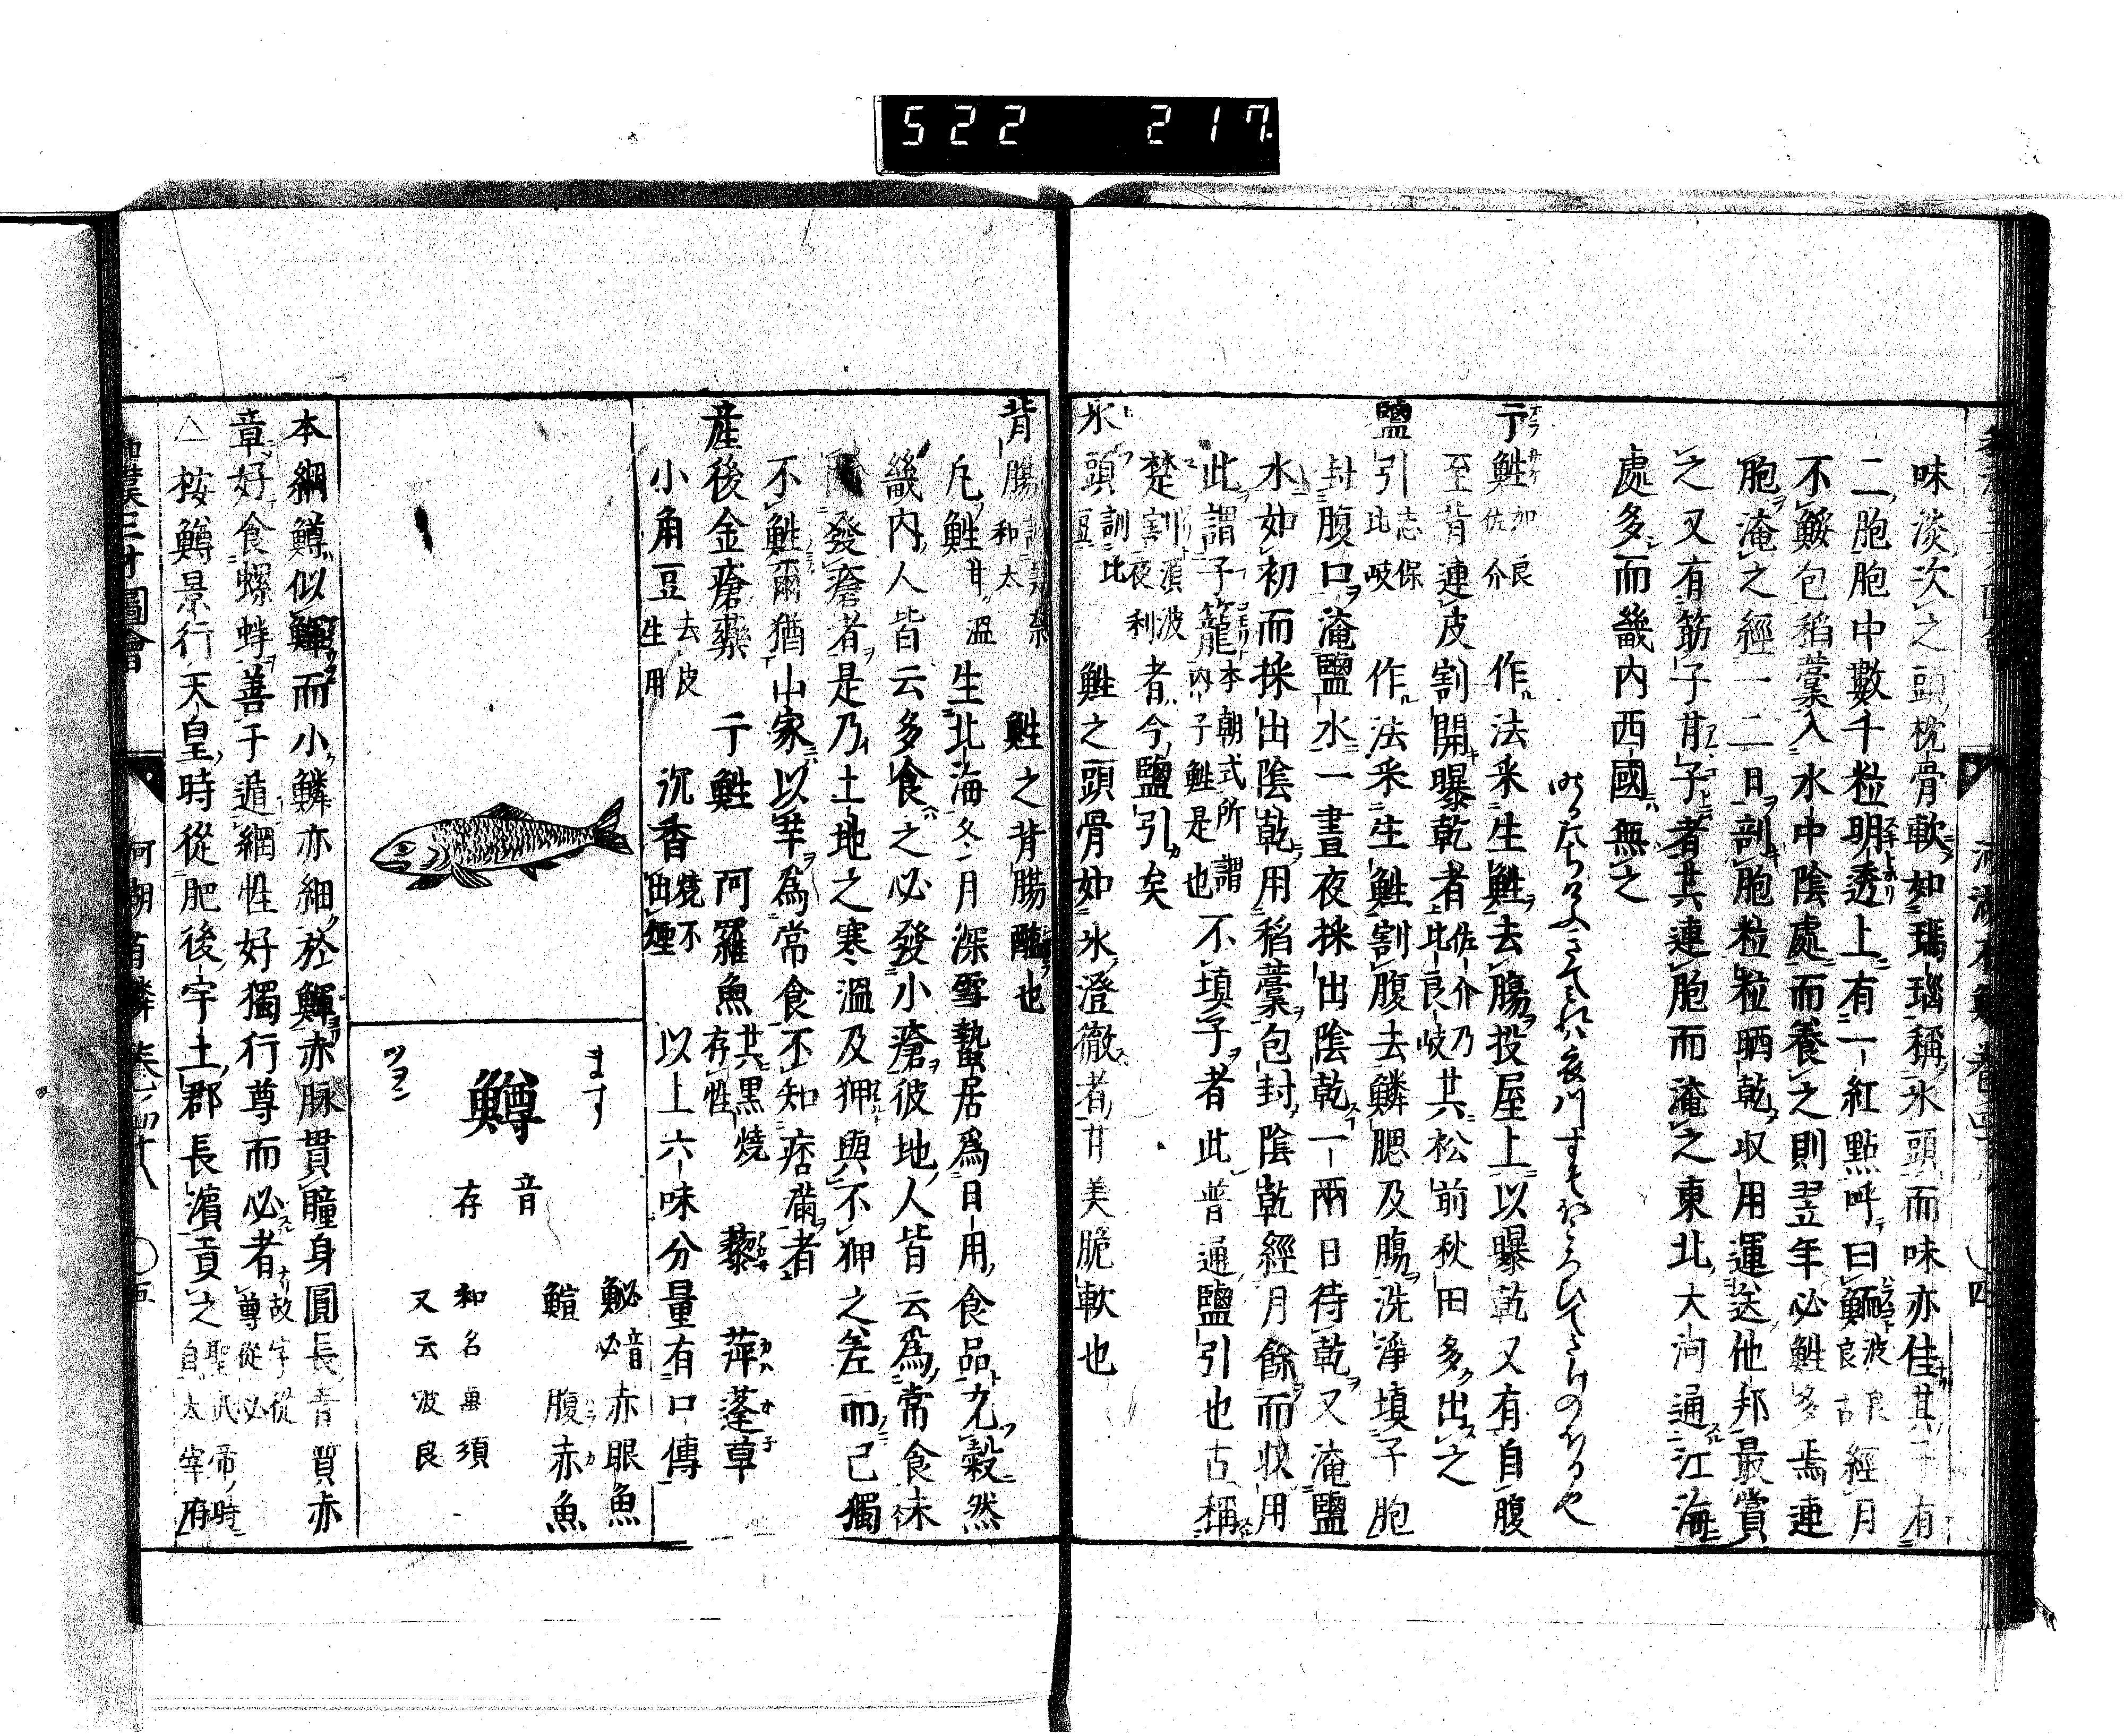 522 217
味淡次之頭枕骨軟如瑪瑙稱氷頭而味亦佳其子有
二胞胞中數千粒明透上有一紅點呼曰䱊 波良良古 經月
不鮾包稻藁入水中陰處而養之則翌年必鮏多焉連
胞淹之經一二日剖胞粒粒晒乾収用運送他邦最賞
之又有筋子甘子者其連胞而淹之東北大河通江海
處多而畿内西國無之
干鮏 加良佐介 作法釆生鮏去腸投屋上以曝乾又有自腹
至背連皮割開曝乾者 佐介乃比良岐 其松前秋田多出之
鹽引 志保比岐 作法釆生鮏割腹去鱗腮及腸洗淨填子胞
封腹口淹鹽水一晝夜採出陰乾一兩日待乾又淹鹽
水如初而採出陰乾用稻藁包封陰乾經月餘而収用
此謂子籠 本朝式所謂内子鮏是也 不填子者此普通鹽引也古稱
楚割 須波夜利 者今鹽引矣
氷頭 訓比豆 鮏之頭骨如氷澄徹者甘美脆軟也
背腸 訓美奈和太 鮏之背腸醢也
凡鮏 甘溫 生北海冬月深雪蟄居爲日用食品充穀然
畿内人皆云多食之必發小瘡彼地人皆云爲常食未
發瘡者是乃土地之寒溫及狎與不狎之差而已獨
不鮏爾猶山家以芋爲常食不知痞滿者
産後金瘡藥 干鮏 阿羅魚 其黒燒存性 藜 萍蓬草
小角豆 去皮生用 沉香 燒不出煙 以上六味分量有口傳
ます
鱒 音存
ツヲン
鮅 音必 赤眼魚
䱇 腹赤魚
和名萬須
又云波良
本綱鱒似鯶而小鱗亦細於鯶赤脉貫瞳身圓長青質赤
章好食螺蚌善于遁網性好獨行尊而必者 故字從尊從必
△按鱒景行天皇時從肥後宇土郡長濱貢之 聖武帝時自太宰府
河湖有鱗 卷四十八 ○五